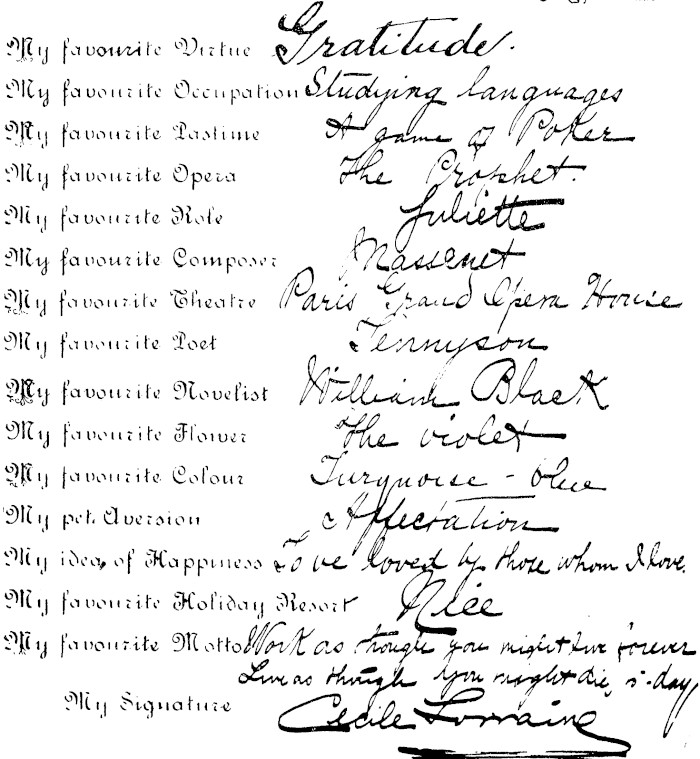 My favourite Virtue Gratitude.
My favourite Occupation Studying languages
My favourite Pastime A game of Poker
My favourite Opera The Prophet.
My favourite Role Juliette
My favourite Composer Massenet
My favourite Theatre Paris Grand Opera House
My favourite Poet Tennyson
My favourite Novelist William Black
My favourite Flower The violet
My favourite Colour Turquoise-blue
My pet Aversion Affectation
My idea of Happiness To be loved by those whom I love.
My favourite Holiday Resort Nice
My favourite Motto Work as though you might live forever
Live as though you might die to-day
My Signature Cecile Lorraine